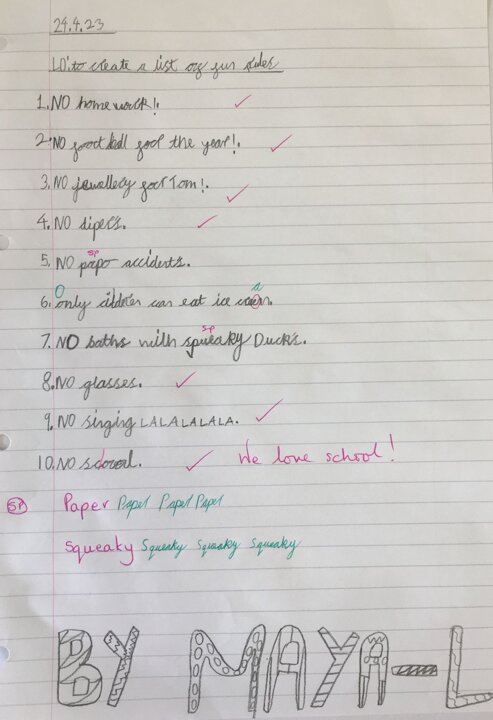 24.4.23
LO: to create a list of fun rules
1. NO home work!.
2. NO foot ball for the year!.
3. NO jewellery for Tom!.
4. NO dipers.
sp
5. NO papo accidents.
O a
6. only can eat ice
sp
7. NO baths with squeaky Ducks.
8. NO glasses.
9. NO singing LALALALALA.
10. NO scool. We love school!
SP Paper Paper Paper Paper
Squeaky Squeaky Squeaky Squeaky
BY MAYA-L